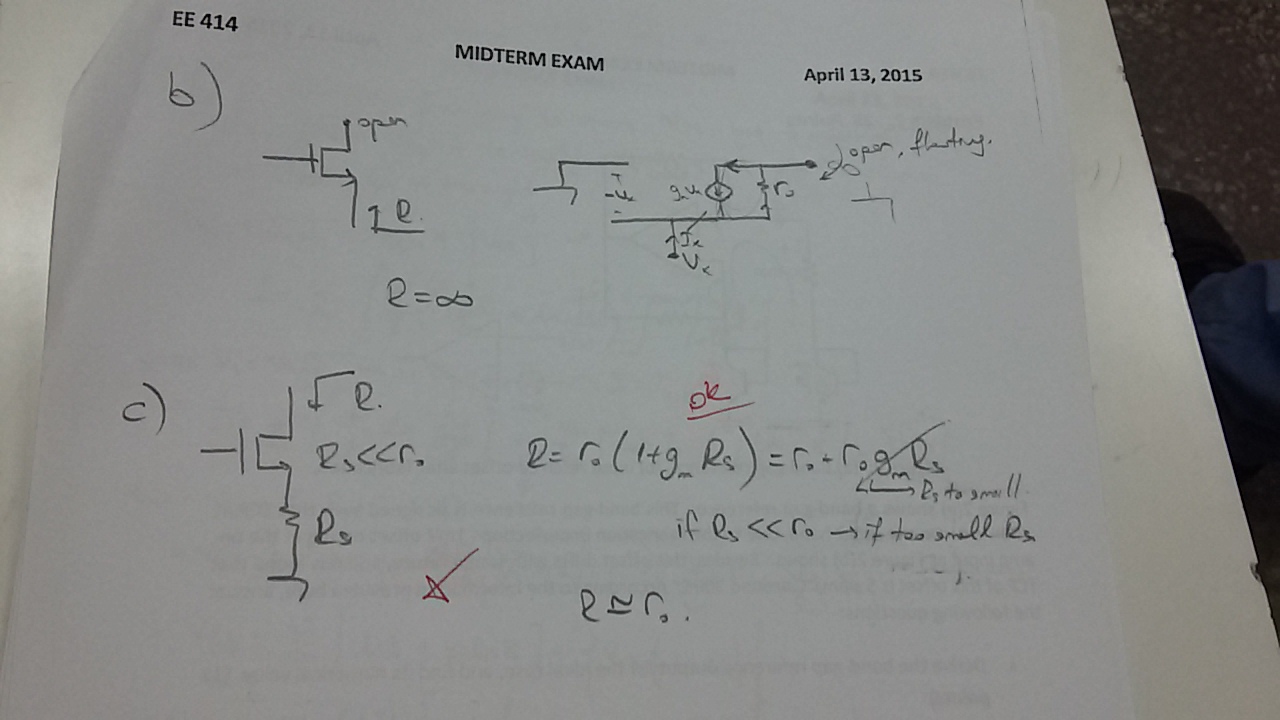 EE 414
MIDTERM EXAM
April 13, 2015
b)
open
R.
gₘvₓ
r₀
open, floating.
Iₓ
Vₓ
R=∞
c)
R.
Rs<<r₀
Rs
ok
R= r₀(1+gₘ Rs) = r₀ + r₀gₘRs
Rs to small
if Rs << r₀ → if too small Rs
R ≅ r₀.